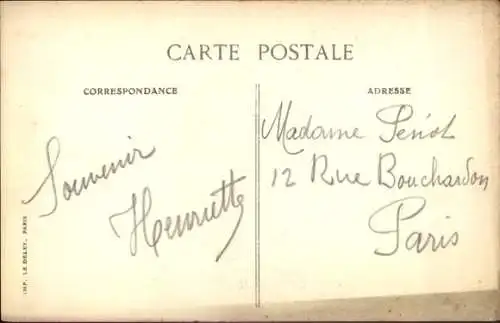 CARTE POSTALE
CORRESPONDANCE
ADRESSE
Souvenir
Henriette
Madame Peniot
12 Rue Bouchardon
Paris
IMP. LE DELEY, PARIS